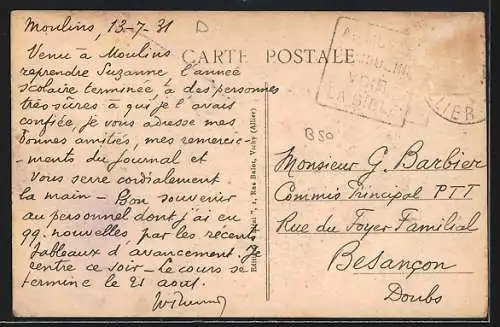 Moulins, 13-7-31
D
CARTE POSTALE
Venu à Moulins
reprendre Suzanne l'année
scolaire terminée, à des personnes
très sûres à qui je l'avais
confiée, je vous adresse mes
bonnes amitiés, mes remercie-
ments du journal et
vous serre cordialement
la main - Bon souvenir
au personnel dont j'ai eu
qq. nouvelles, par les récents
tableaux d'avancement. Je
rentre ce soir - Le cours se
termine le 21 août.
, 2, Rue Bulot, Vichy (Allier)
LIER
B50
Monsieur G. Barbier
Commis Principal PTT
Rue du Foyer Familial
Besançon
Doubs